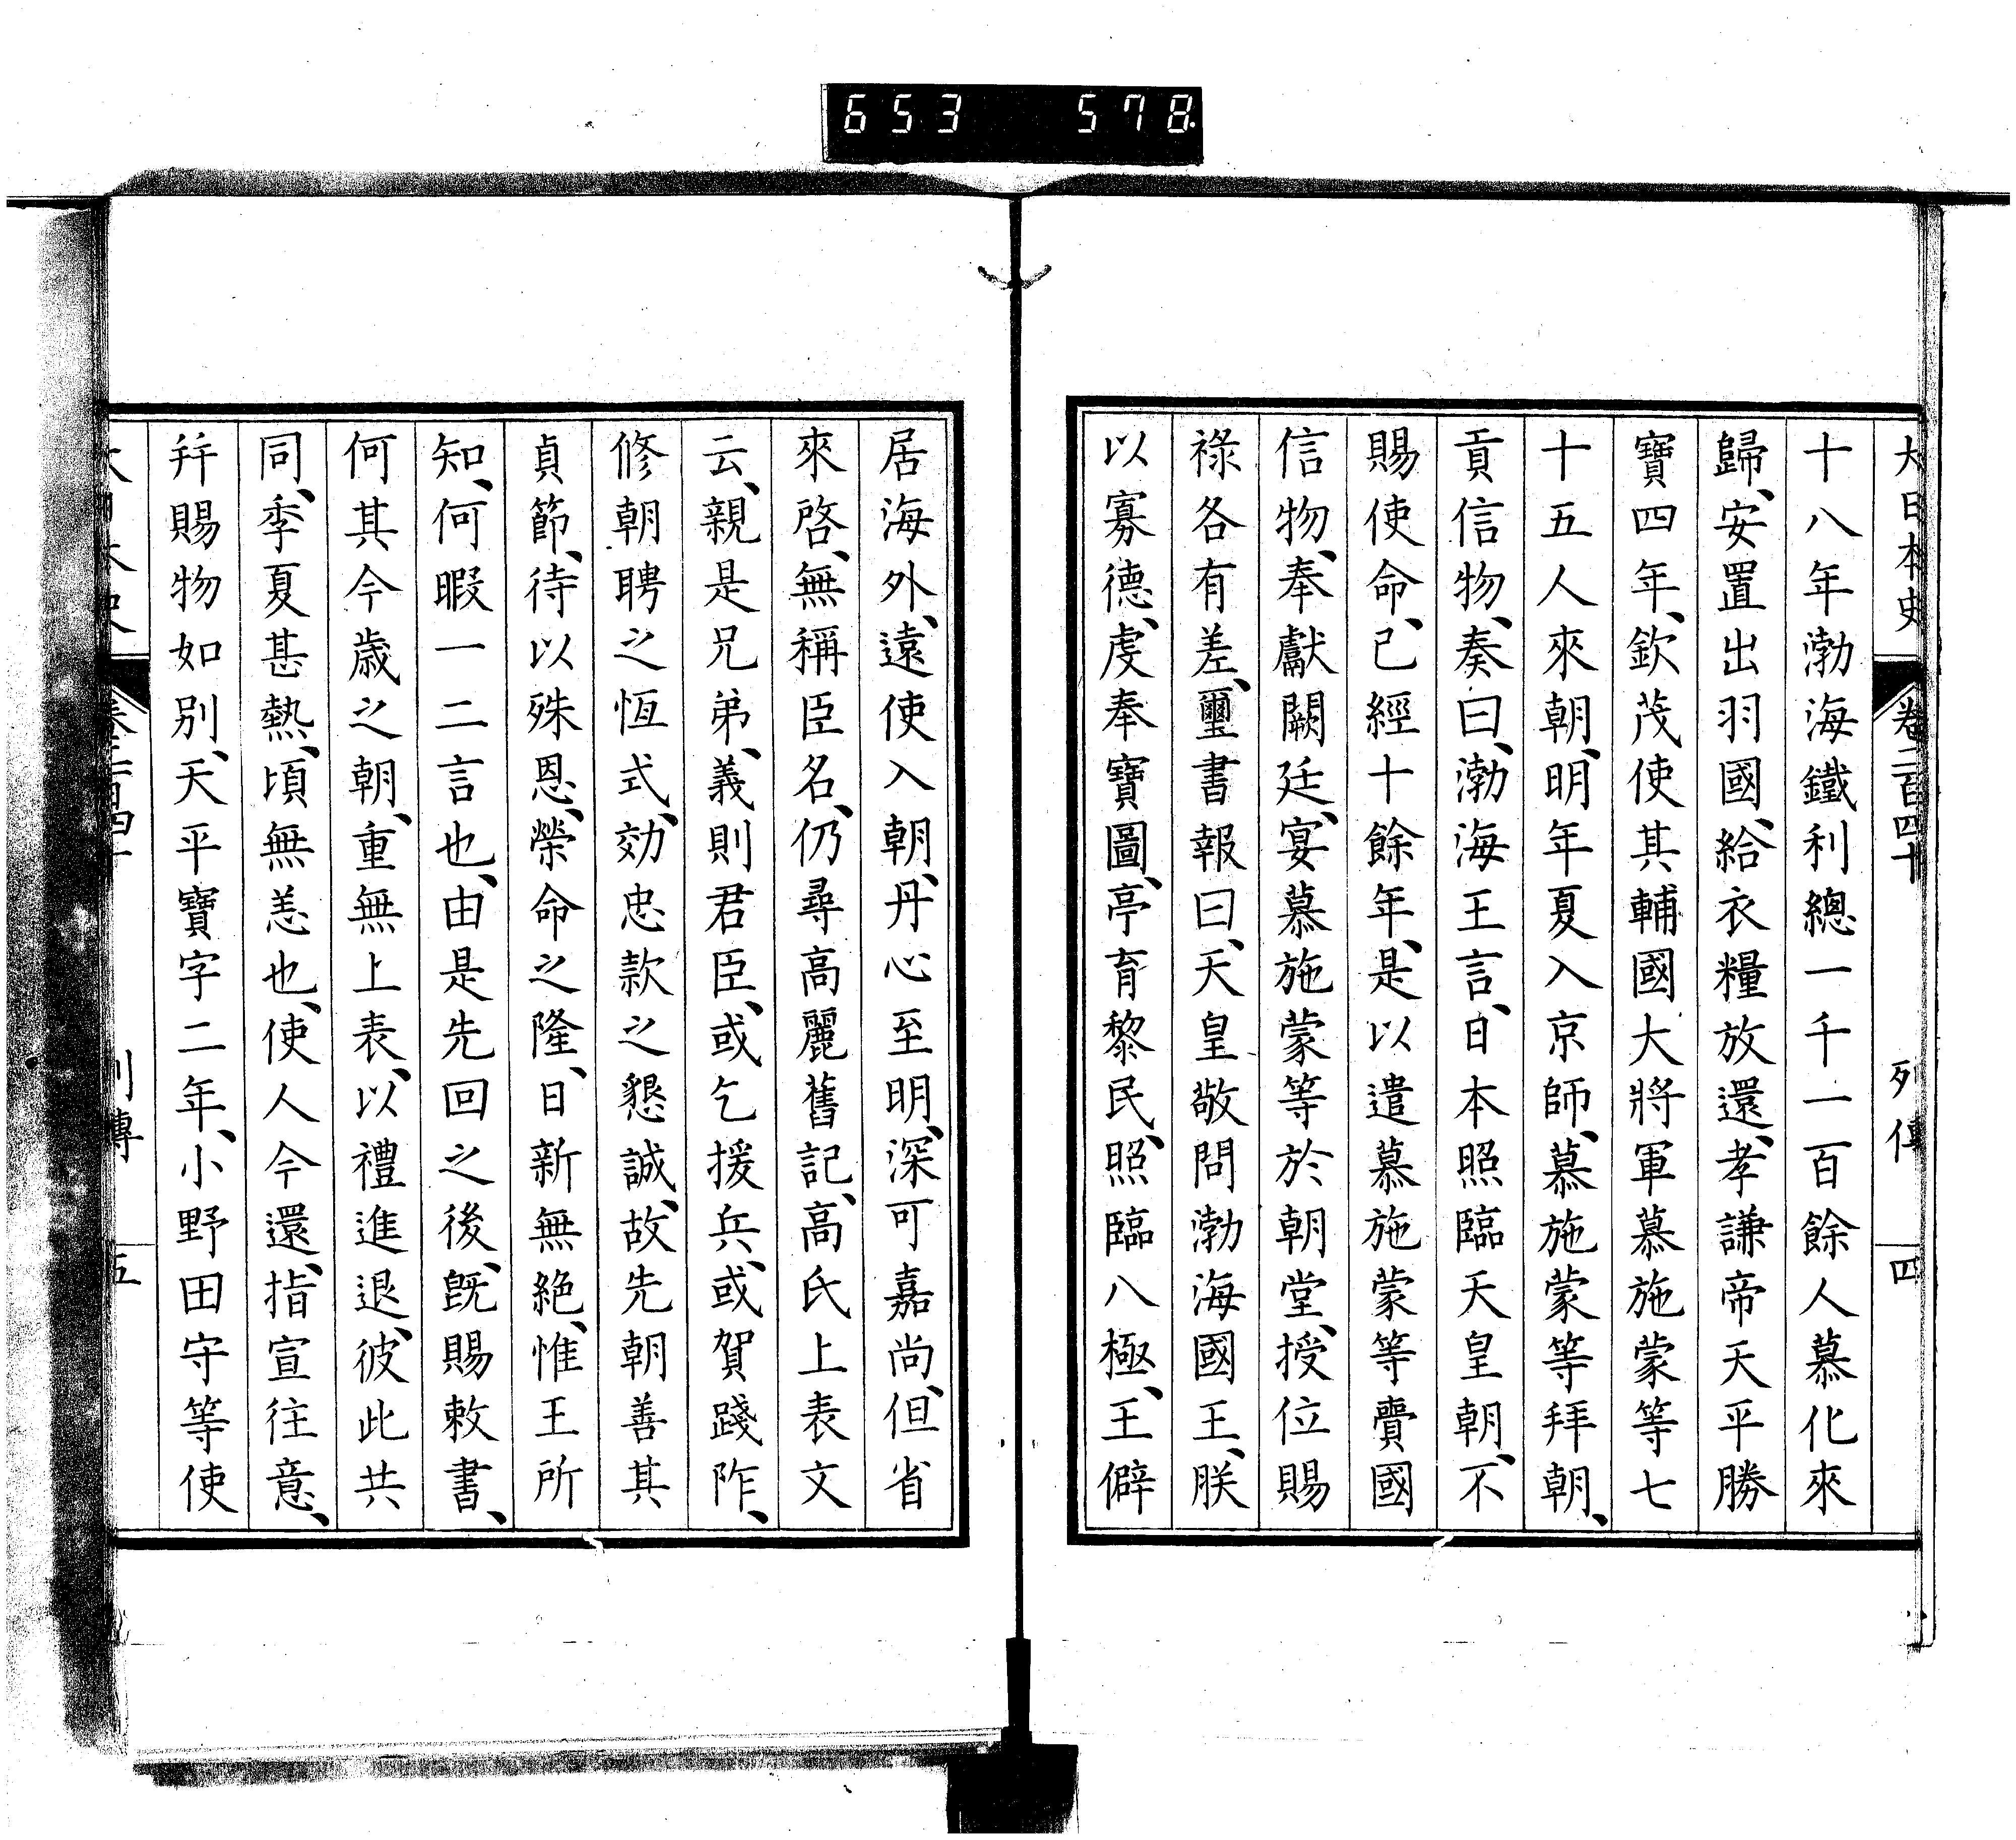 653 578
大日本史 卷二百四十 列傳 四
十八年渤海鐵利總一千一百餘人慕化來
歸、安置出羽國、給衣糧放還、孝謙帝天平勝
寶四年、欽茂使其輔國大將軍慕施蒙等七
十五人來朝、明年夏入京師、慕施蒙等拜朝、
貢信物、奏曰、渤海王言、日本照臨天皇朝、不
賜使命、已經十餘年、是以遣慕施蒙等賷國
信物、奉獻闕廷、宴慕施蒙等於朝堂、授位賜
祿各有差、璽書報曰、天皇敬問渤海國王、朕
以寡德、虔奉寶圖、亭育黎民、照臨八極、王僻
居海外、遠使入朝、丹心至明、深可嘉尚、但省
來啓、無稱臣名、仍尋高麗舊記、高氏上表文
云、親是兄弟、義則君臣、或乞援兵、或賀踐阼、
修朝聘之恆式、効忠款之懇誠、故先朝善其
貞節、待以殊恩、榮命之隆、日新無絕、惟王所
知、何暇一二言也、由是先回之後、旣賜敕書、
何其今歲之朝、重無上表、以禮進退、彼此共
同、季夏甚熱、頃無恙也、使人今還、指宣往意、
幷賜物如別、天平寶字二年、小野田守等使
大日本史 卷二百四十 列傳 五